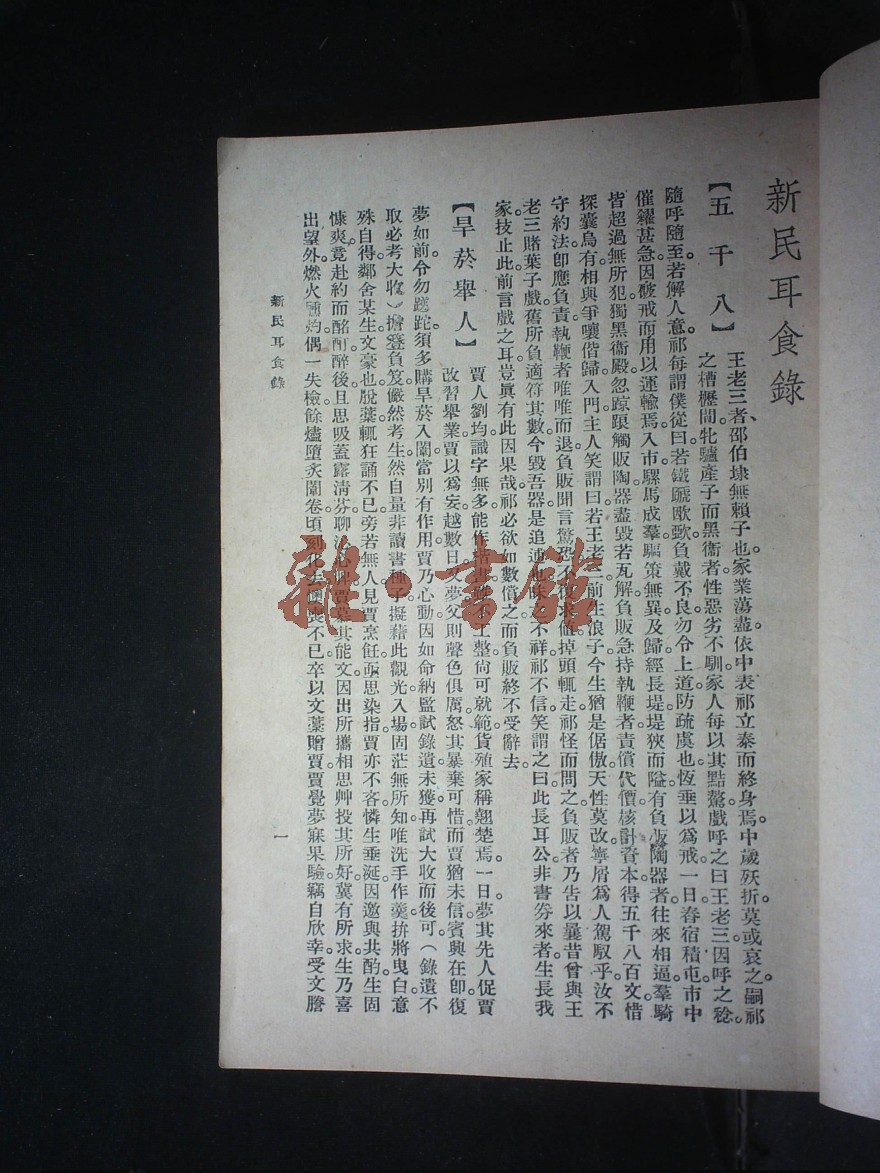 新民耳食錄
【五千八】
王老三者、邵伯埭無賴子也。家業蕩盡。依中表祁立泰而終身焉。中歲殀折。莫或哀之。嗣祁
之槽櫪間。牝驢產子而黑衞者。性惡劣不馴。家人每以其黠驁。戲呼之曰王老三。因呼之稔。
隨呼隨至。若解人意。祁每謂僕從曰。若鐵驪歐歐。負戴不良。勿令上道。防疏虞也。恆垂以爲戒。一日。春宿積屯。市中
催糴甚急。因破戒而用以運輸焉。入市騾馬成羣。驅策無異。及歸經長堤。堤狹而隘。有負販陶器者。往來相逼。羣騎
皆超過無所犯。獨黑衞殿。忽踉觸販。陶器盡毀若瓦解。負販急持執鞭者責償代價。核計資本。得五千八百文。惜
探囊烏有。相與爭嚷偕歸。入門。主人笑謂曰。若王老三前生浪子。今生猶是倨傲天性莫改。寧屑爲人駕馭乎。汝不
守約法。卽應負責。執鞭者唯唯而退。負販聞言驚恐。不復求値。掉頭輒走。祁怪而問之。負販者乃告以曩昔曾與王
老三賭葉子戲。舊所負適符其數。今毀吾器。是追逋也。昧之不祥。祁不信。笑謂之曰。此長耳公。非書劵來者。生長我
家。技止此。前言戲之耳。豈眞有此因果哉。祁必欲如數償之。而負販終不受。辭去。
【旱菸舉人】
賈人劉均。識字無多。能作楷書。雖不工整。尙可就範。貨殖家稱翹楚焉。一日。夢其先人促賈
改習舉業。賈以爲妄。越數日。又夢父則聲色俱厲。怒其暴棄可惜。而賈猶未信。賓興在卽。復
夢如前。令勿蹉跎。須多購旱菸入闈。當別有作用。賈乃心動。因如命納監試。錄遺未獲。再試大收而後可。（錄遺不
取必考大收）擔簦負笈。儼然考生。然自量非讀書種子。擬藉此觀光。入場固茫無所知。唯洗手作羹。拚將曳白。意
殊自得。鄰舍某生文豪也。脫藁輒狂誦不已。旁若無人。見賈烹飪。亟思染指。賈亦不吝。憐生垂涎。因邀與共酌。生固
慷爽。竟赴約而酩酊。醉後且思吸蓋露淸芬。聊沁心脾。賈慕其能文。因出所攜相思艸。投其所好。冀有所求。生乃喜
出望外。燃火噴灼。偶一失檢。餘燼墮炙闈卷。頃刻化去。懊喪不已。卒以文藁贈賈。賈覺夢寐果驗。竊自欣幸。受文謄
新民耳食錄
一
雜·書館